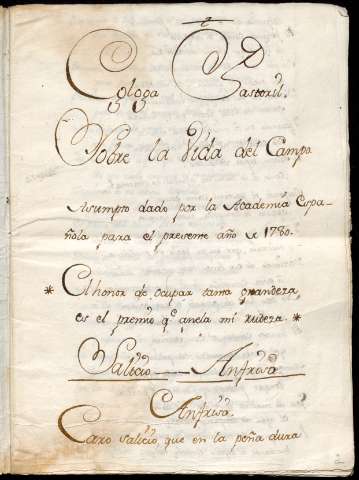 Egloga Pastoril.
Sobre la Vida del Campo
Asumpto dado por la Academia Espa-
ñola para el presente año de 1780.
* El honor de ocupar tanta grandeza
es el premio q.e anela mi rudeza. *
Salicio — Anfriso
Anfriso.
Caro Salicio, que en la peña dura